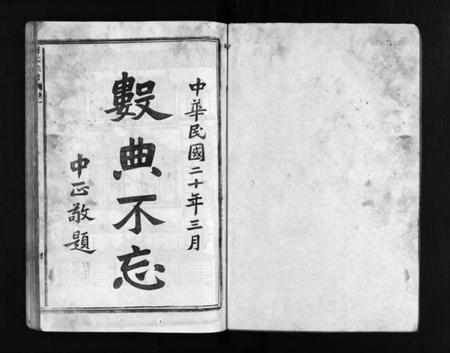 中華民國二十年三月
數典不忘
中正敬題